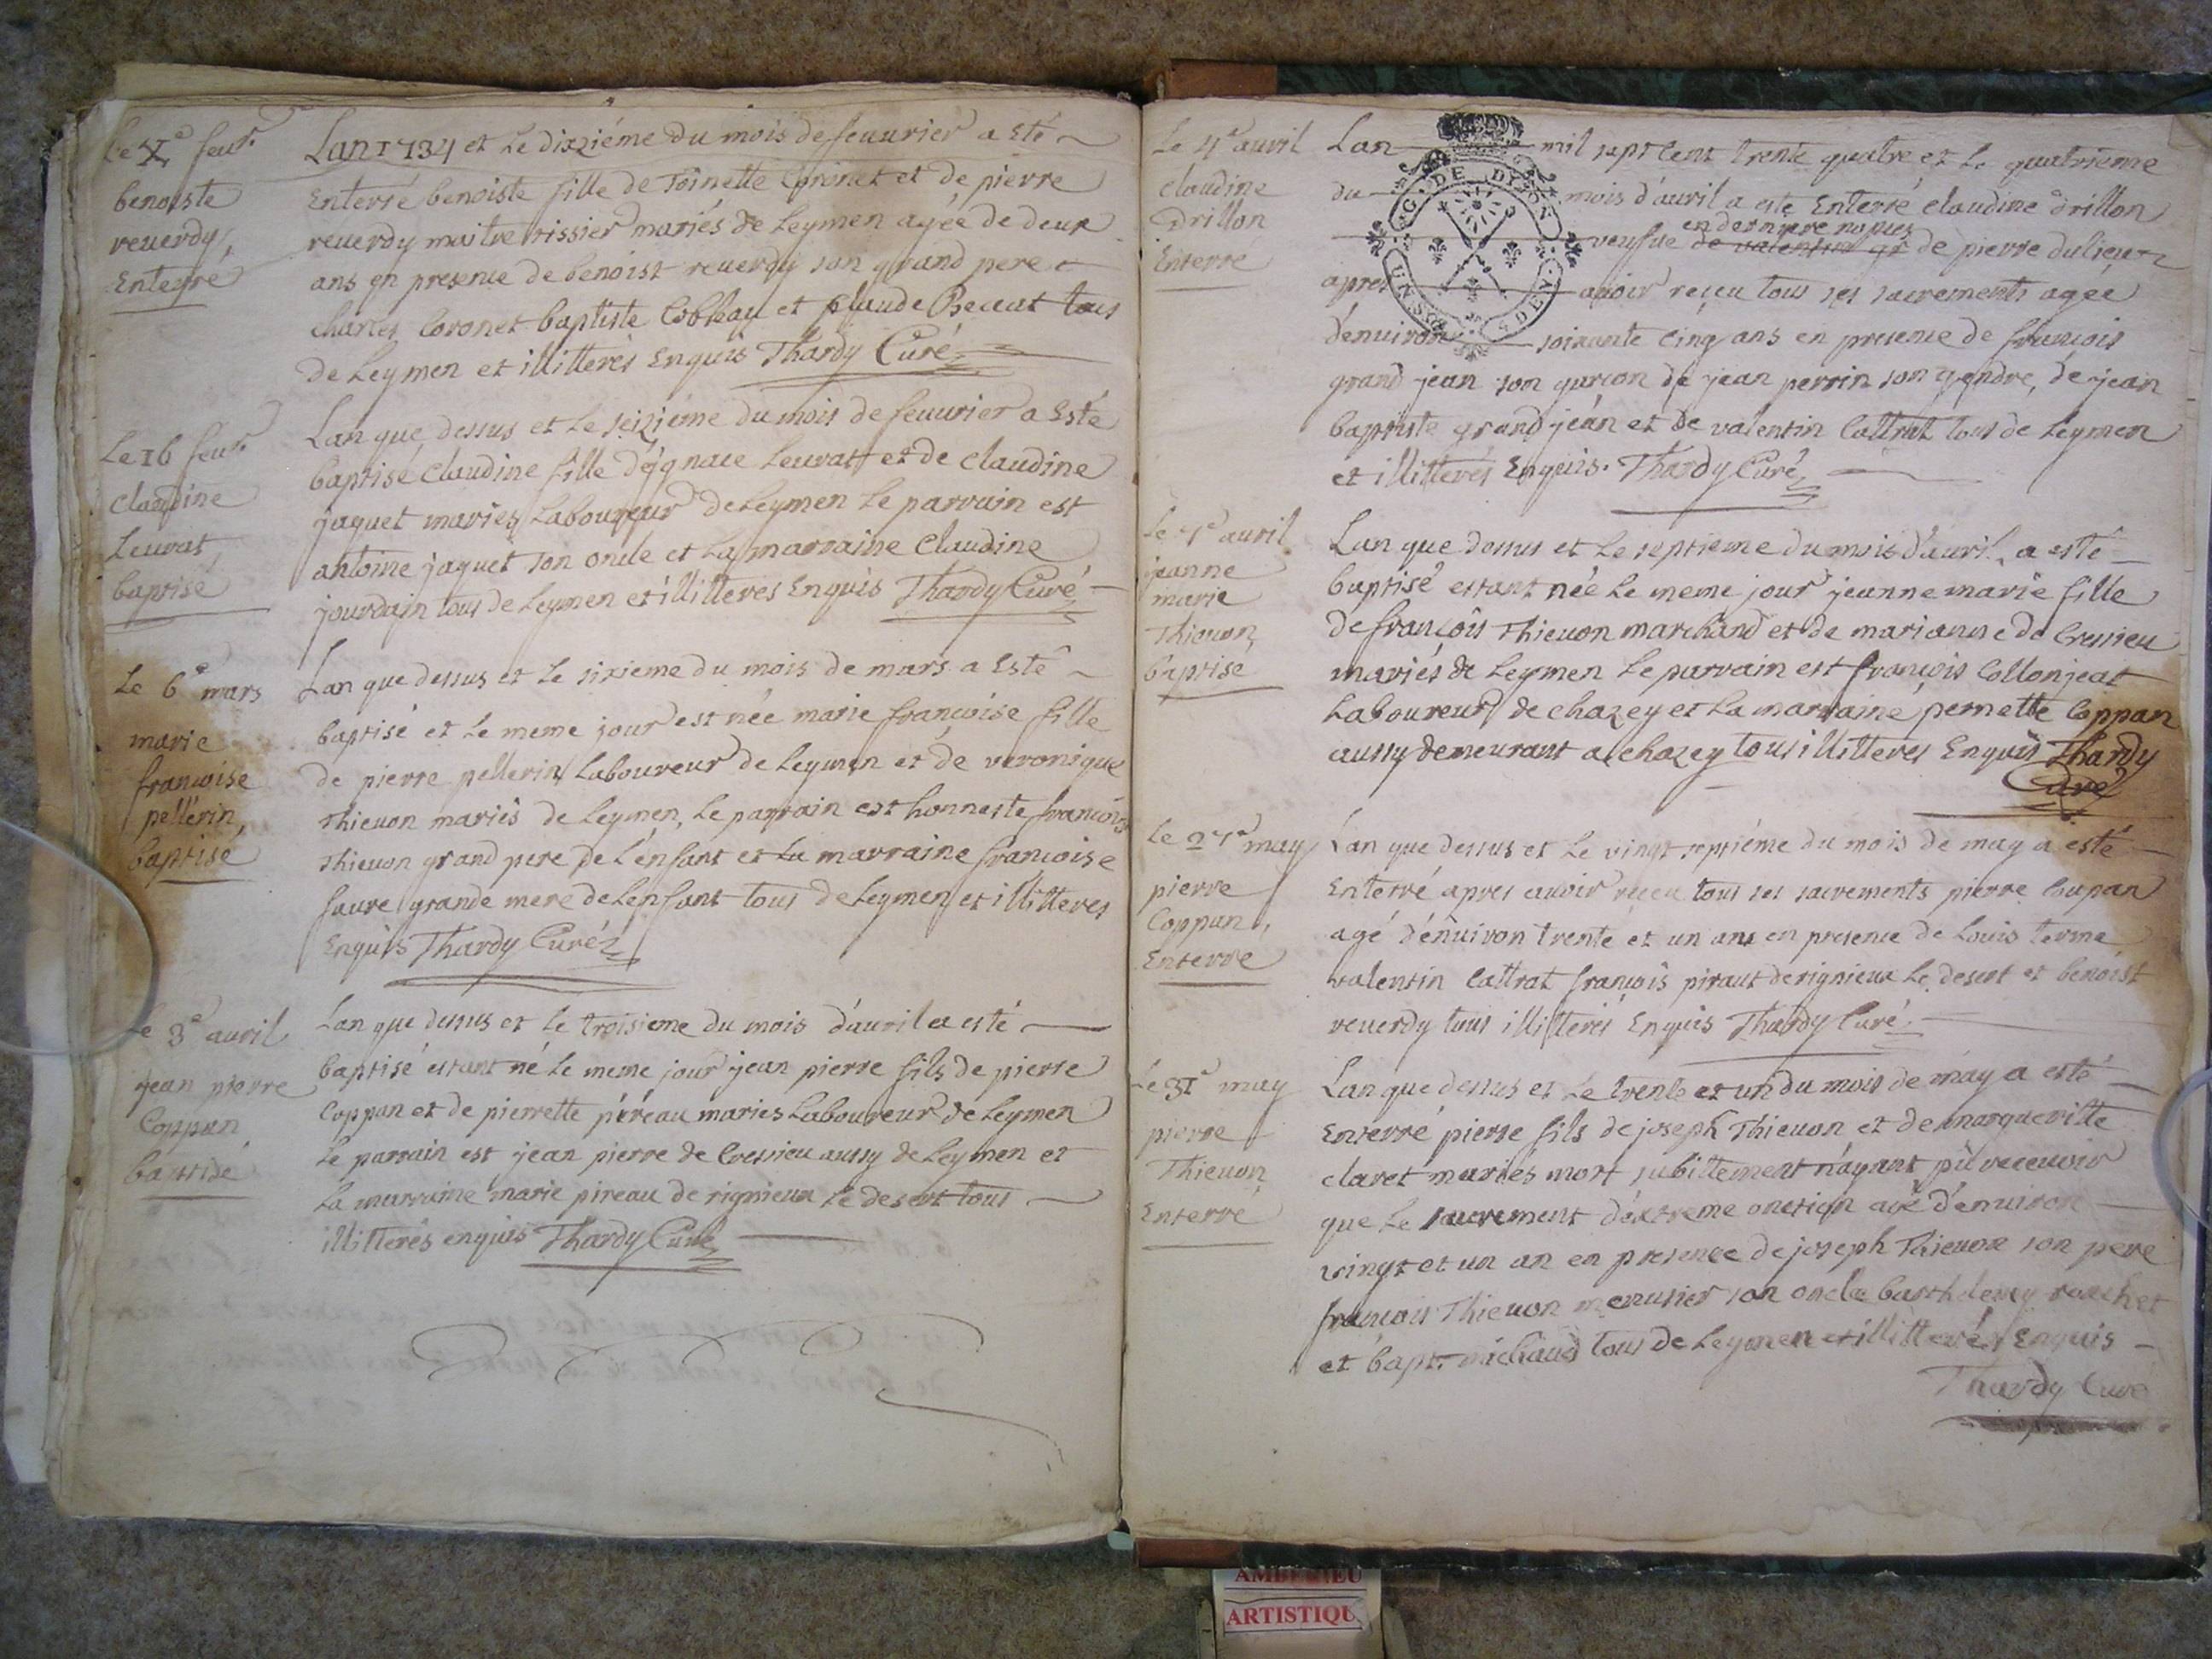 Le X.e feur.
benoiste
reuerdy,
Enterré
Lan 1734 et Le dixziéme du mois de feuurier a Eté
Enterré benoiste fille de Toinette Coronet et de pierre
reuerdy maitre tissier mariés de Leymen agée de deux
ans en presence de benoist reuerdy son grand pere
charles Coronet baptiste et claude tous
de Leymen et illitterés Enquis Thardy Curé
Le 16 feur.
Claudine
Leurat
baptisé
Lan que dessus et Le seiziéme du mois de feuurier a Esté
baptisé Claudine fille d'ignace Leurat et de Claudine
jaquet mariés Laboureur de Leymen Le parrain est
antoine jaquet son oncle et La marraine Claudine
jourdain tous de Leymen et illitteres Enquis Thardy Curé
Le 6e mars
marie
francoise
pellerin,
baptisé
Lan que dessus et Le sixieme du mois de mars a Esté
baptisé et Le meme jour est née marie francoise fille
de pierre pellerin Laboureur de Leymen et de veronique
Thieuon mariés de Leymen, Le parrain est honneste francois
Thieuon grand pere de L'enfant et La marraine francoise
faure grande mere de Lenfant tous de Leymen et illitteres
Enquis Thardy Curé
Le 3e auril
jean pierre
Coppan
baptisé
Lan que dessus et Le troisieme du mois d'auril a esté
baptisé estant né Le meme jour jean pierre fils de pierre
Coppan et de pierrette péreau maries Laboureur de Leymen
Le parrain est jean pierre de Cressieu aussy de Leymen et
La marraine marie pireau de rignieux Le desert tous
illitterés enquis Thardy Curé
Le 4e auril
Claudine
Drillon
Enterré
Lan mil sept cent trente quatre et Le quatrieme
du mois d'auril a esté Enterré Claudine Drillon
en dernyere nopces
veufue de valentin gr de pierre dulieu
apres auoir reçeu tous ses sacrements agée
d'enuiron soixante cinq ans en presence de francois
grand jean son garcon de jean perrin son gendre, de jean
baptiste grand jean et de valentin Cattrat tous de Leymen
et illitterés Enquis. Thardy Curé
G. DE DIJON
Le 7e auril
jeanne
marie
Thieuon,
baptisé
Lan que dessus et Le septieme du mois d'auril, a esté
baptisé estant née Le meme jour jeanne marie fille
de francois Thieuon marchand et de marianne de Cressieu
mariés de Leymen Le parrain est francois Collonjeat
Laboureur de chazey et La marraine pernette Coppan
aussy demeurant a chazey tous illitteres Enquis Thardy
Curé
Le 27e may
pierre
Coppan,
Enterré
Lan que dessus et Le vingt septiéme du mois de may a esté
Enterré apres auoir reçeu tous ses sacrements pierre Cupan
agé d'enuiron trente et un ans en presence de Louis terme
valentin Cattrat francois piraut de rignieux Le desert et benoist
reuerdy tous illitterés Enquis Thardy Curé
Le 31e may
pierre
Thieuon
Enterré
Lan que dessus et Le trente et un du mois de may a esté
Enterré pierre fils de joseph Thieuon et de marqueritte
claret mariés mort subittement n'ayant pû receuoir
que Le sacrement d'extreme onction agé d'enuiron
vingt et un an en presence de joseph Thieuon son pere
francois Thieuon menusier son oncle barthelemy rouchet
et bapt. michaud tous de Leymen et illitterés Enquis
Thardy Curé
AMBERIEU
ARTISTIQU